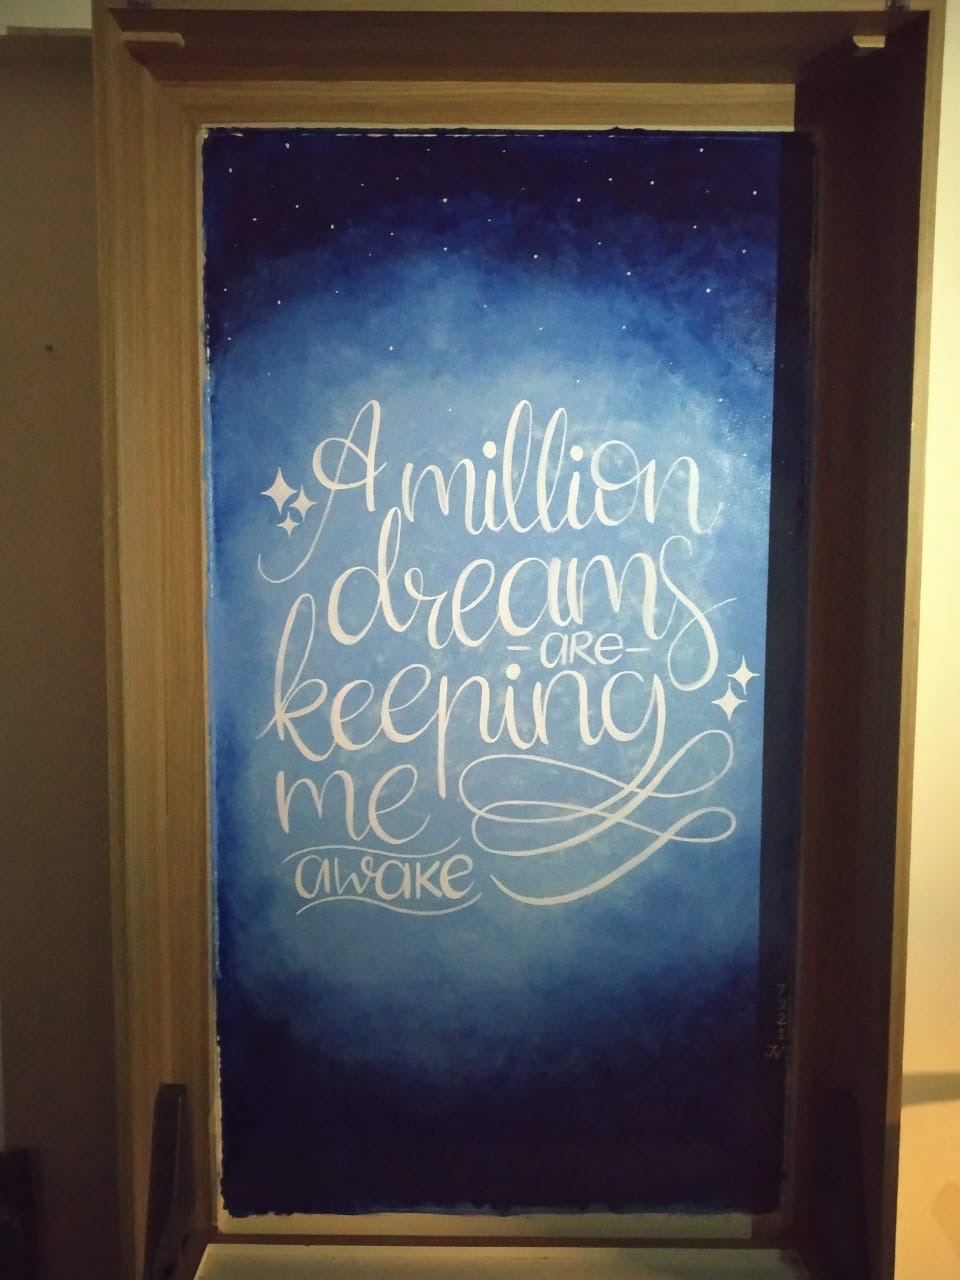 A million
dreams
- are -
keeping
me
awake